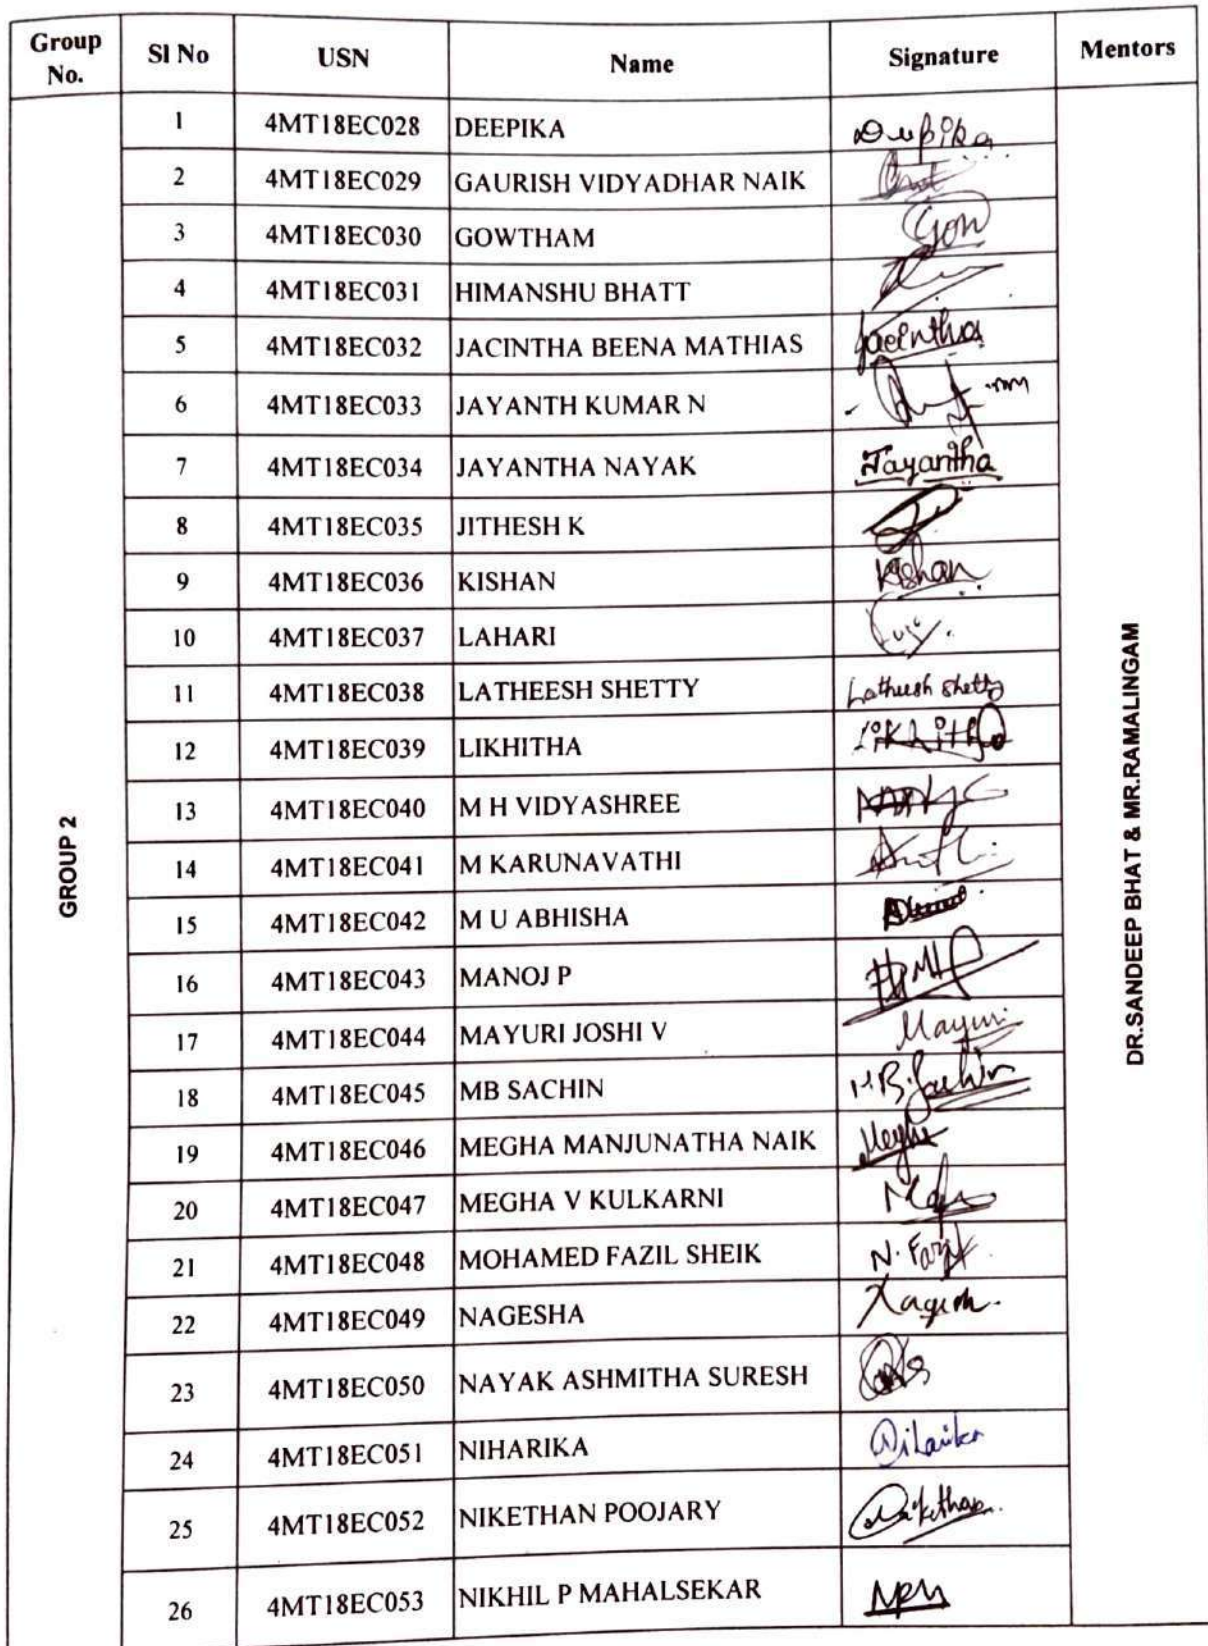 Group No. Sl No USN Name Signature Mentors
1 4MT18EC028 DEEPIKA Deepika
2 4MT18EC029 GAURISH VIDYADHAR NAIK
3 4MT18EC030 GOWTHAM Gow
4 4MT18EC031 HIMANSHU BHATT
5 4MT18EC032 JACINTHA BEENA MATHIAS Jacintha
6 4MT18EC033 JAYANTH KUMAR N
7 4MT18EC034 JAYANTHA NAYAK Jayantha
8 4MT18EC035 JITHESH K
9 4MT18EC036 KISHAN Kishan
10 4MT18EC037 LAHARI
11 4MT18EC038 LATHEESH SHETTY Latheesh Shetty
12 4MT18EC039 LIKHITHA Likhitha
13 4MT18EC040 M H VIDYASHREE
14 4MT18EC041 M KARUNAVATHI
15 4MT18EC042 M U ABHISHA
16 4MT18EC043 MANOJ P
17 4MT18EC044 MAYURI JOSHI V Mayuri
18 4MT18EC045 MB SACHIN M.B.Sachin
19 4MT18EC046 MEGHA MANJUNATHA NAIK Megha
20 4MT18EC047 MEGHA V KULKARNI
21 4MT18EC048 MOHAMED FAZIL SHEIK
22 4MT18EC049 NAGESHA
23 4MT18EC050 NAYAK ASHMITHA SURESH
24 4MT18EC051 NIHARIKA Niharika
25 4MT18EC052 NIKETHAN POOJARY Nikethan
26 4MT18EC053 NIKHIL P MAHALSEKAR NPM
GROUP 2
DR.SANDEEP BHAT & MR.RAMALINGAM